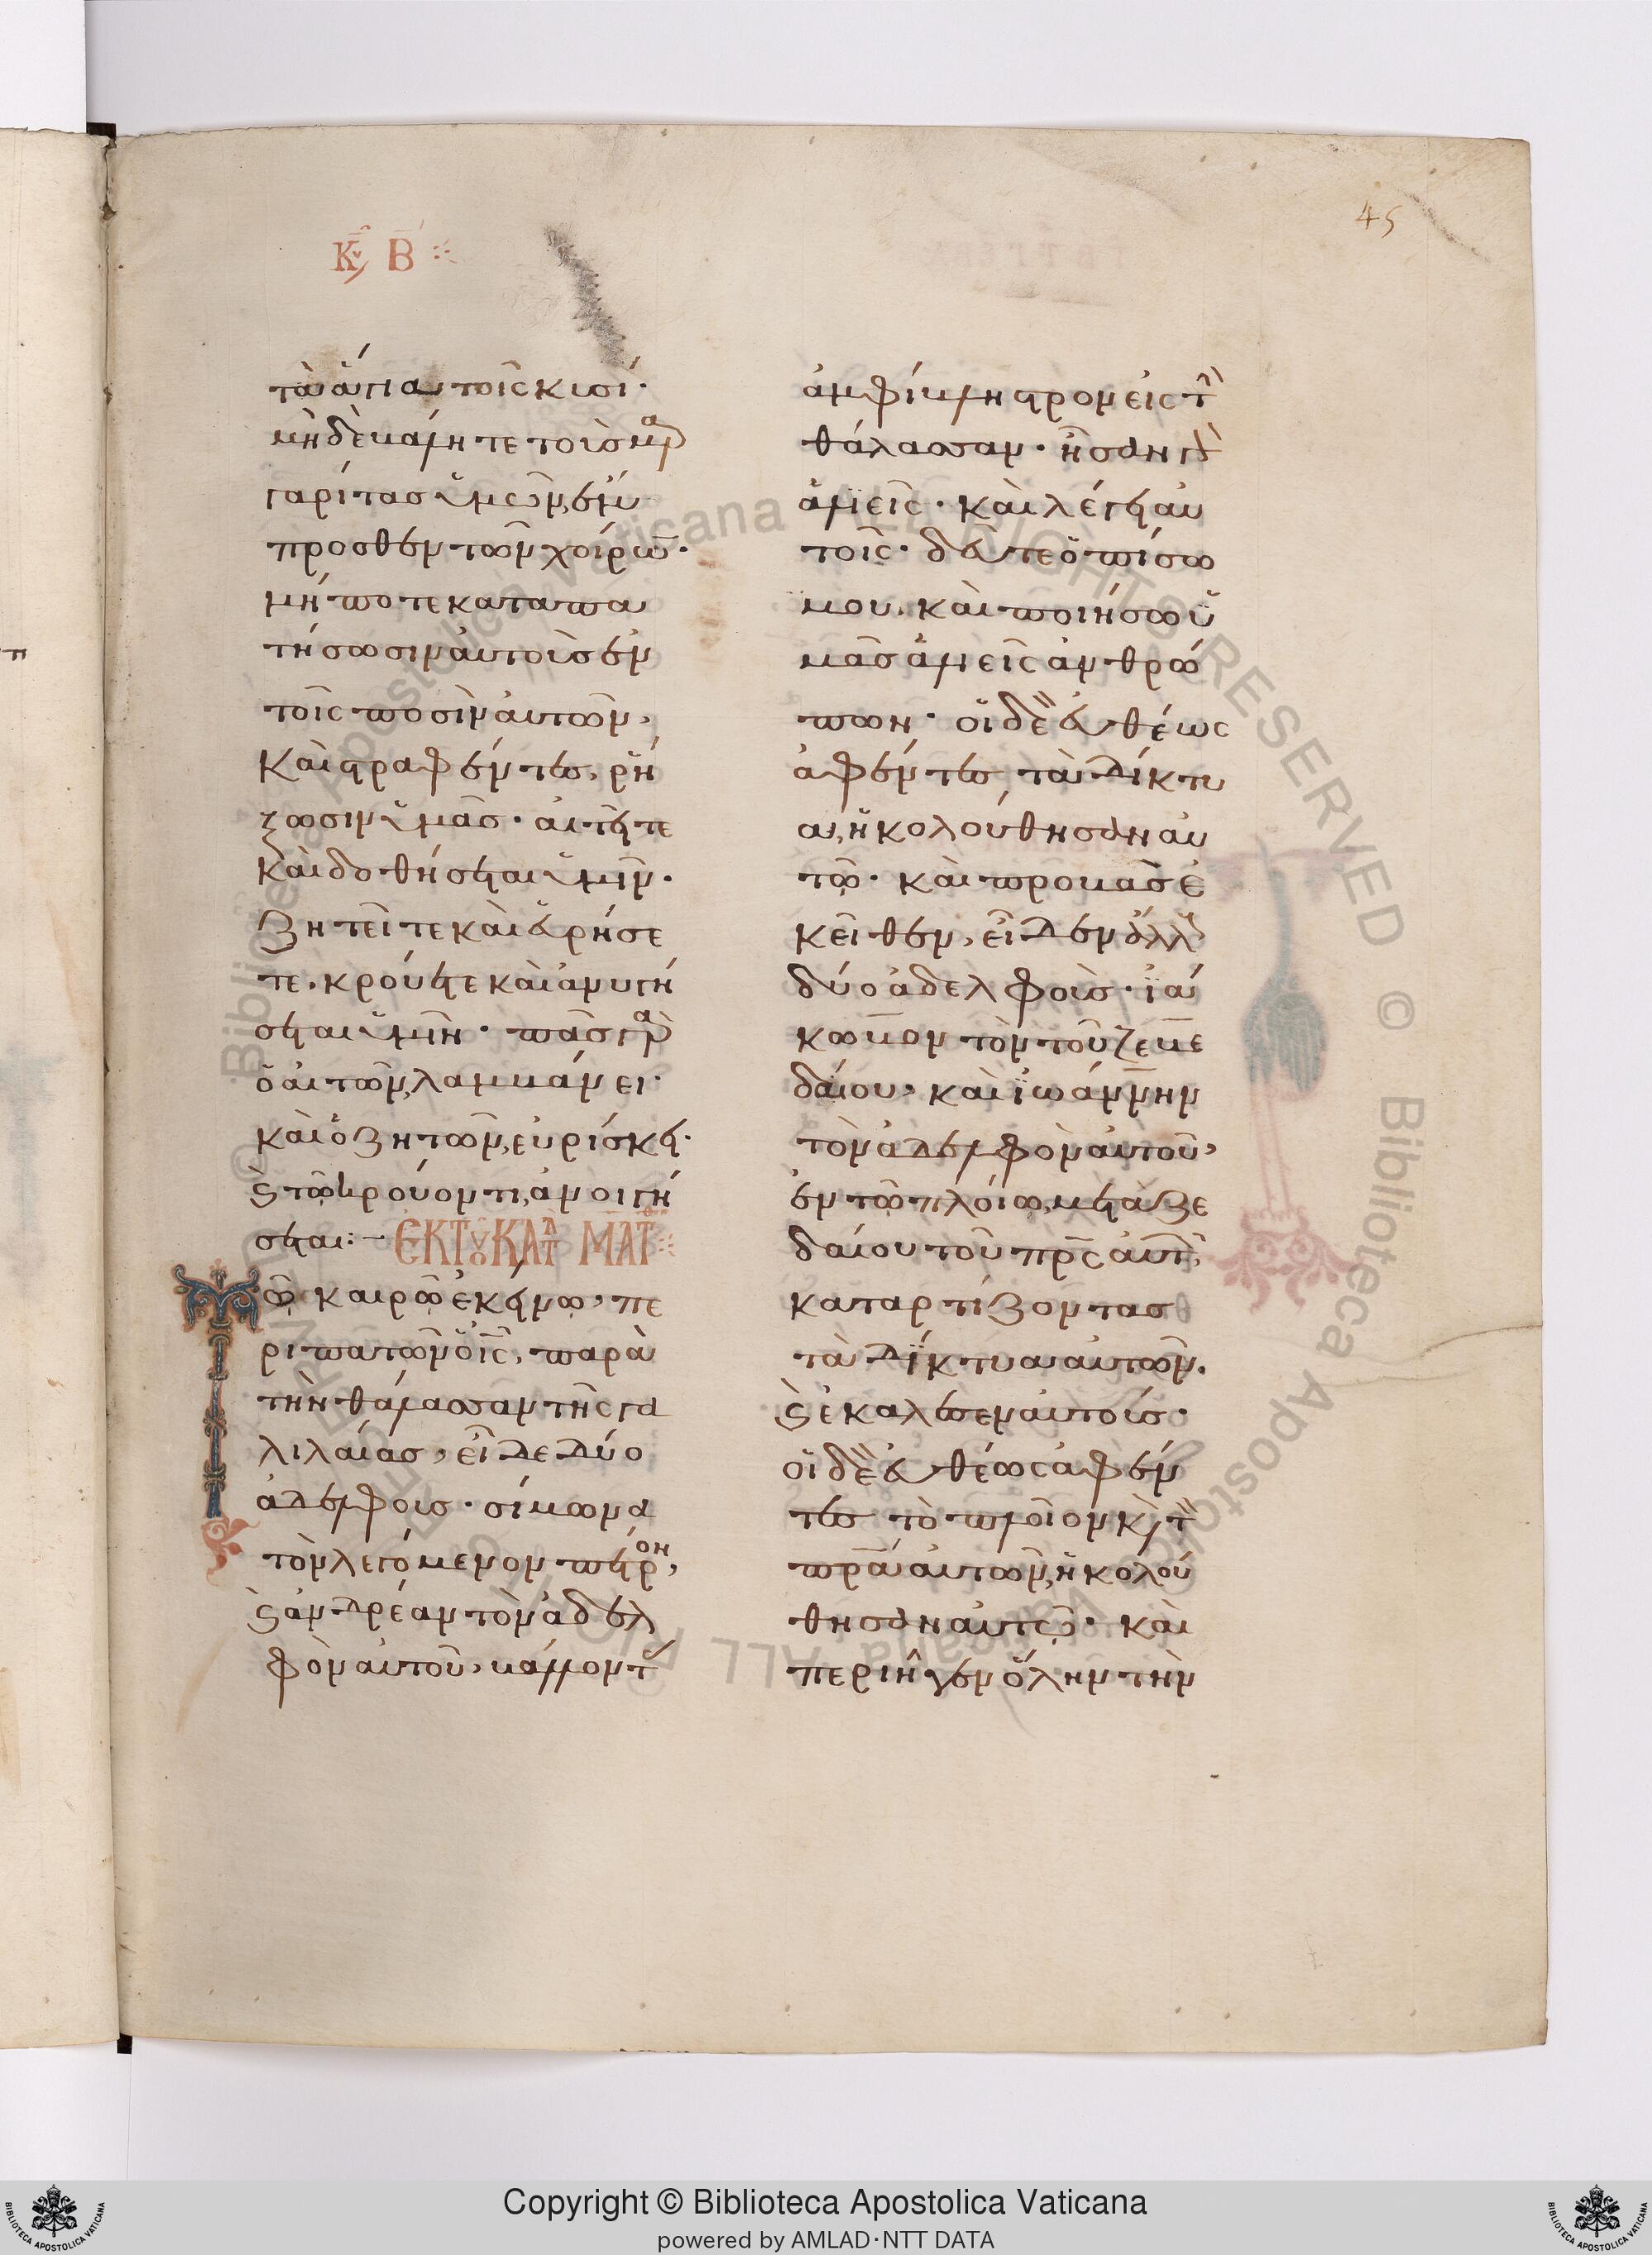 45
Κυ Β
τὰ ἅγια τοῖς κυσί·
μὴ δὲ βάλητε τοὺς μαρ
γαρίτας ὑμῶν, ἔμ
προσθεν τῶν χοίρων·
μή ποτε καταπα
τήσωσιν αὐτοὺς ἐν
τοῖς ποσὶν αὐτῶν,
καὶ στραφέντες, ῥή
ξωσιν ὑμᾶς· αἰτεῖτε
καὶ δοθήσεται ὑμῖν·
ζητεῖτε καὶ εὑρήσε
τε· κρούετε καὶ ἀνυγή
σεται ὑμῖν· πᾶς γὰρ
ὁ αἰτῶν, λαμβάνει·
καὶ ὁ ζητῶν, εὑρίσκει·
ϗ τῷ κρούοντι, ἀνοιγή
σεται:— ΕΚ ΤΟΥ ΚΑΤΑ ΜΑΤΘ
Τῷ καιρῷ ἐκείνῳ, πε
ριπατῶν ὁ ι̅ς̅, παρὰ
τὴν θάλασσαν τῆς γα
λιλαίας, εἶδε δύο
ἀδελφοὺς· σίμωνα
τὸν λεγόμενον πέτρον,
ϗ ἀνδρέαν τὸν ἀδελ
φὸν αὐτοῦ, βάλλοντας
ἀμφίβληστρον εἰς τὴν
θάλασσαν· ἦσαν γὰρ
ἁλιεῖς· καὶ λέγει αὐ
τοῖς· δεῦτε ὀπίσω
μου, καὶ ποιήσω ὑ
μᾶς ἁλιεῖς ἀνθρώ
πων· οἱ δὲ εὐθέως
ἀφέντες τὰ δίκτυ
α, ἠκολούθησαν αὐ
τῷ· καὶ προβὰς ἐ
κεῖθεν, εἶδεν ἄλλους
δύο ἀδελφοὺς· ἰά
κωβον τὸν τοῦ ζεβε
δαίου, καὶ ἰωάννην
τὸν ἀδελφὸν αὐτοῦ,
ἐν τῷ πλοίῳ, μετὰ ζε
βεδαίου τοῦ π̅ρ̅ς̅ αὐτῶν,
καταρτίζοντας
τὰ δίκτυα αὐτῶν·
ϗ ἐκάλεσεν αὐτούς·
οἱ δὲ εὐθέως ἀφέν
τες τὸ πλοῖον ϗ τὸν
π̅ρ̅α̅ αὐτῶν, ἠκολού
θησαν αὐτῷ· καὶ
περιῆγεν ὅλην τὴν
Copyright © Biblioteca Apostolica Vaticana
powered by AMLAD·NTT DATA